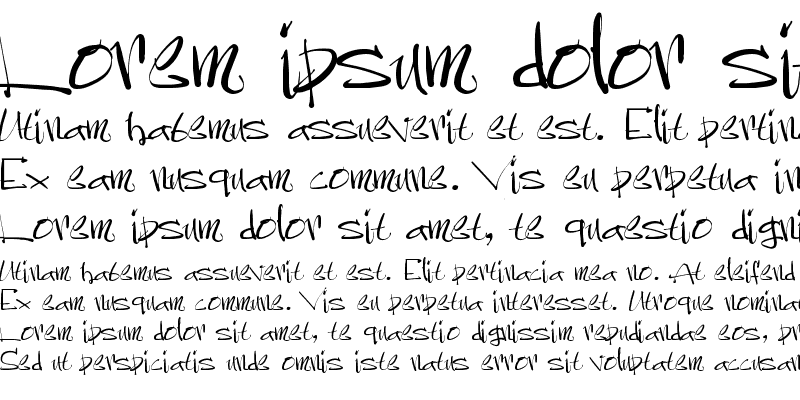 Lorem ipsum dolor sit
Utinam habemus assueverit et est. Elit pertin
Ex eam nusquam commune. Vis eu perpetua in
Lorem ipsum dolor sit amet, te quaestio digni
Utinam habemus assueverit et est. Elit pertinacia mea no. At eleifend
Ex eam nusquam commune. Vis eu perpetua interesset. Utroque nomina
Lorem ipsum dolor sit amet, te quaestio dignissim repudiandae eos, pr
Sed ut perspiciatis unde omnis iste natus error sit voluptatem accusan